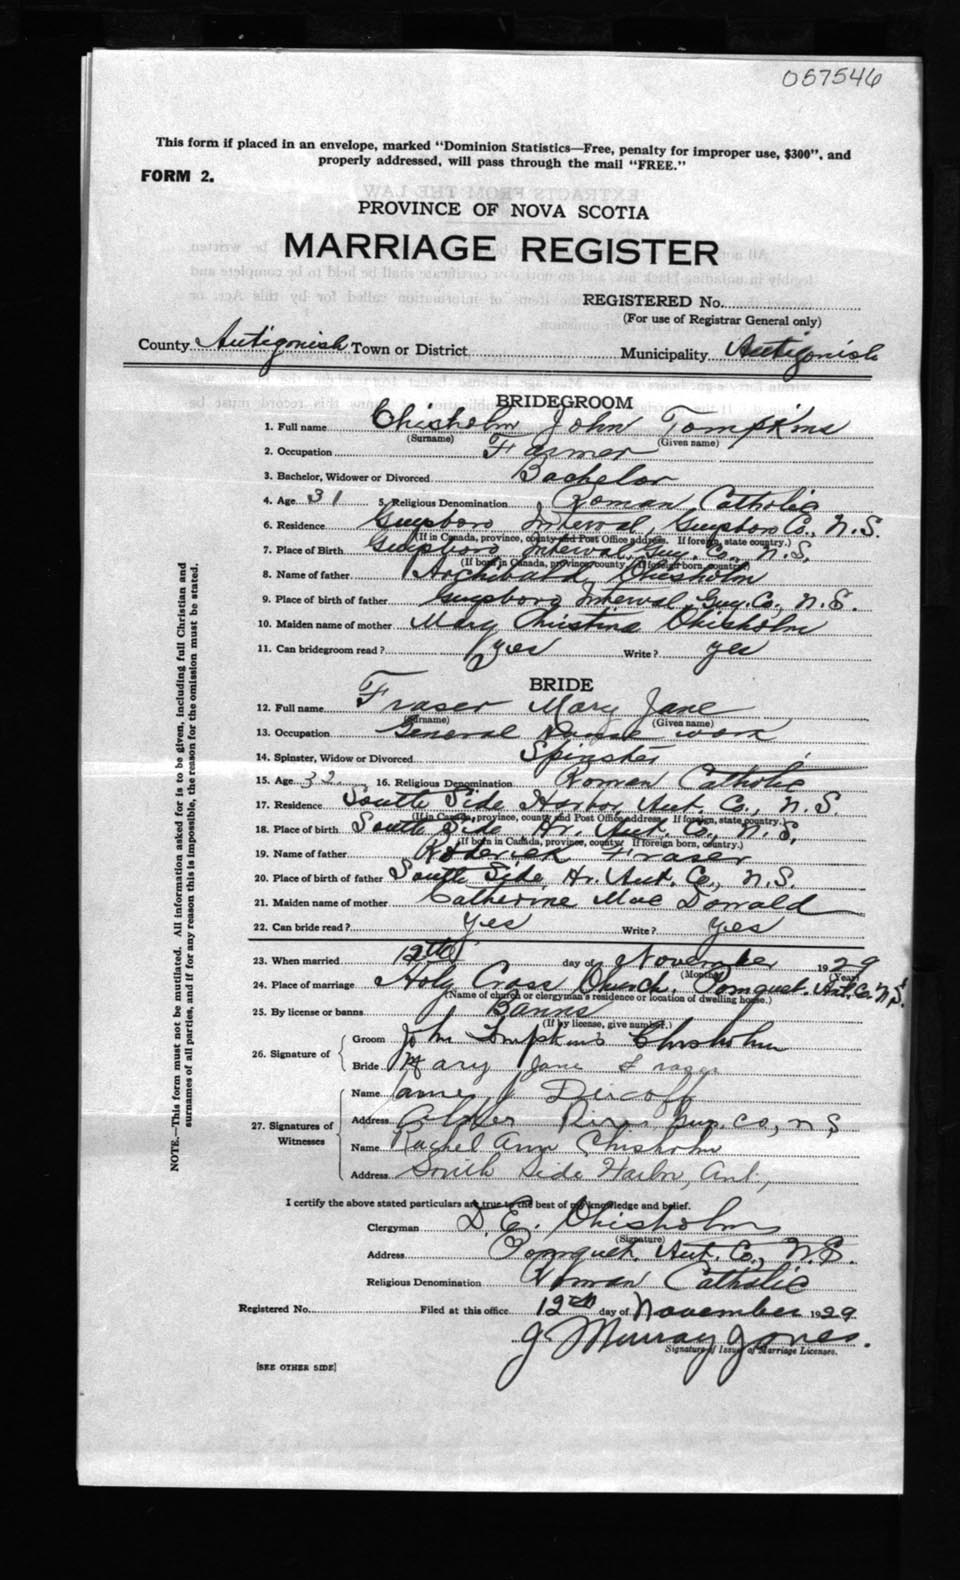 057546
This form if placed in an envelope, marked "Dominion Statistics—Free, penalty for improper use, $300", and
properly addressed, will pass through the mail "FREE."
FORM 2.
PROVINCE OF NOVA SCOTIA
MARRIAGE REGISTER
REGISTERED No.
(For use of Registrar General only)
County Antigonish Town or District Municipality Antigonish
BRIDEGROOM
1. Full name Chisholm John Tompkins
(Surname) (Given name)
2. Occupation Farmer
3. Bachelor, Widower or Divorced Bachelor
4. Age 31 5. Religious Denomination Roman Catholic
6. Residence Guysboro Interval, Guysboro Co., N.S.
(If in Canada, province, county and Post Office address. If foreign, state country.)
7. Place of Birth Guysboro Interval, Guy. Co., N.S.
(If born in Canada, province, county. If foreign born, country.)
8. Name of father Archibald Chisholm
9. Place of birth of father Guysboro Interval, Guy. Co., N.S.
10. Maiden name of mother Mary Christina Chisholm
11. Can bridegroom read? yes Write? yes
BRIDE
12. Full name Fraser Mary Jane
(Surname) (Given name)
13. Occupation General House work
14. Spinster, Widow or Divorced Spinster
15. Age 32 16. Religious Denomination Roman Catholic
17. Residence South Side Harbor, Ant. Co., N.S.
(If in Canada, province, county and Post Office address. If foreign, state country.)
18. Place of birth South Side Hr. Ant. Co., N.S.
(If born in Canada, province, county. If foreign born, country.)
19. Name of father Roderick Fraser
20. Place of birth of father South Side Hr. Ant. Co., N.S.
21. Maiden name of mother Catherine Mac Donald
22. Can bride read? yes Write? yes
23. When married 12th day of November 1929
(Month) (Year)
24. Place of marriage Holy Cross Church, Pomquet, Ant. Co. N.S.
(Name of church or clergyman's residence or location of dwelling house.)
25. By license or banns Banns
(If by license, give number.)
26. Signature of Groom John Tompkins Chisholm
Bride Mary Jane Fraser
27. Signatures of Witnesses Name James J
Address Co, N S
Name Rachel Ann Chisholm
Address South Side Harbor, Ant.,
I certify the above stated particulars are true to the best of my knowledge and belief.
Clergyman D. E. Chisholm
(Signature)
Address Pomquet, Ant. Co., N.S.
Religious Denomination Roman Catholic
Registered No. Filed at this office 12th day of November 1929
J. Murray Jones.
Signature of Issuer of Marriage Licenses.
[SEE OTHER SIDE]
NOTE.—This form must not be mutilated. All information asked for is to be given, including full Christian and
surnames of all parties, and if for any reason this is impossible, the reason for the omission must be stated.